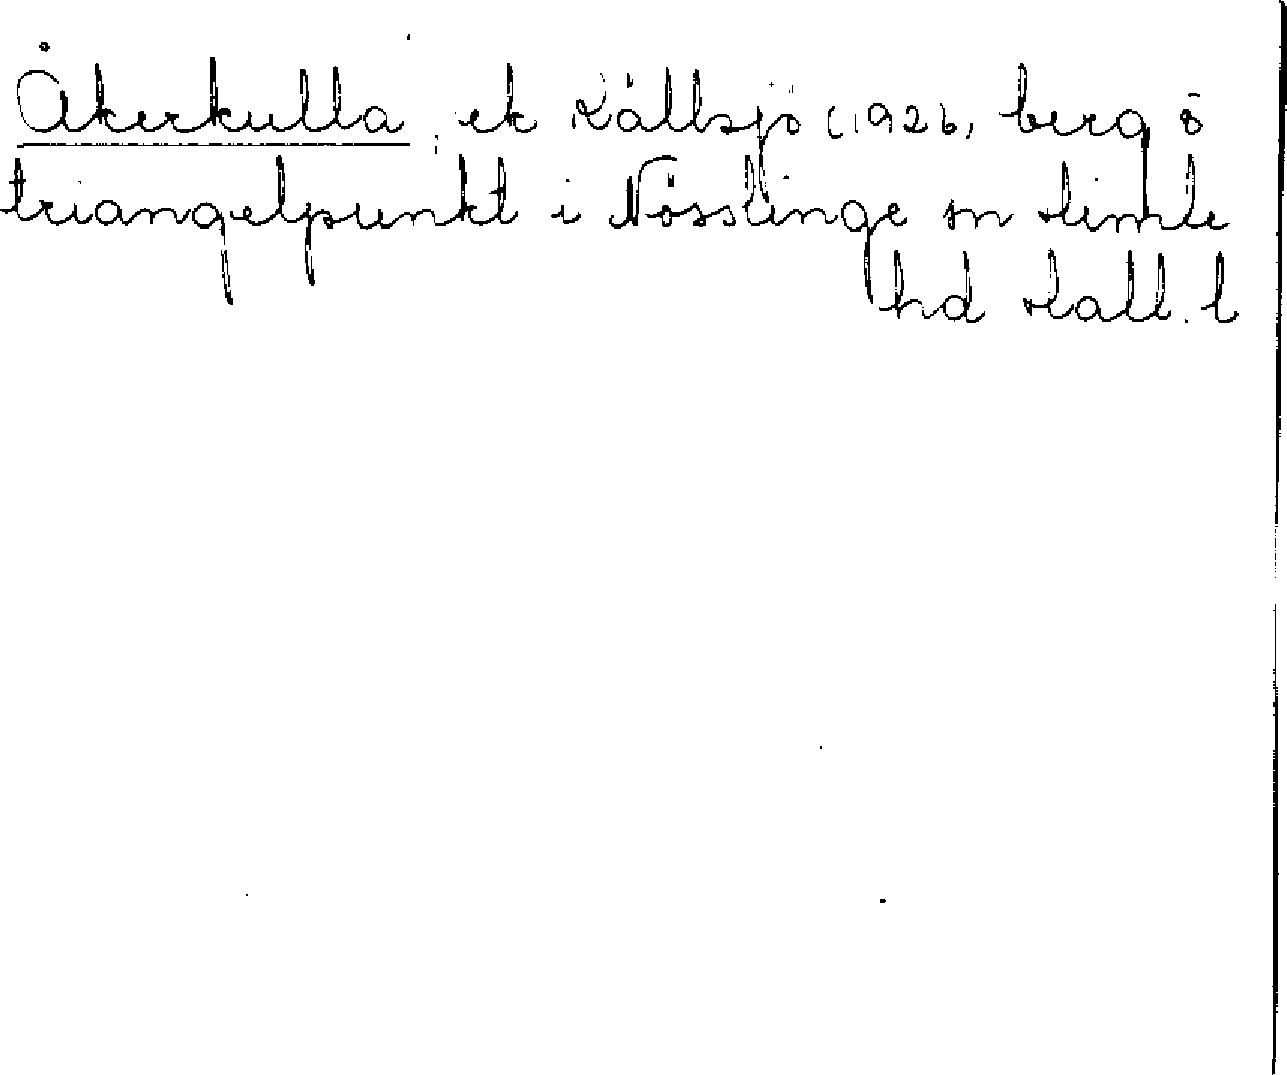 Åkerkulla, ek Källsjö (1926, berg o
triangelpunkt i Nösslinge sn Himle
hd Hall. l